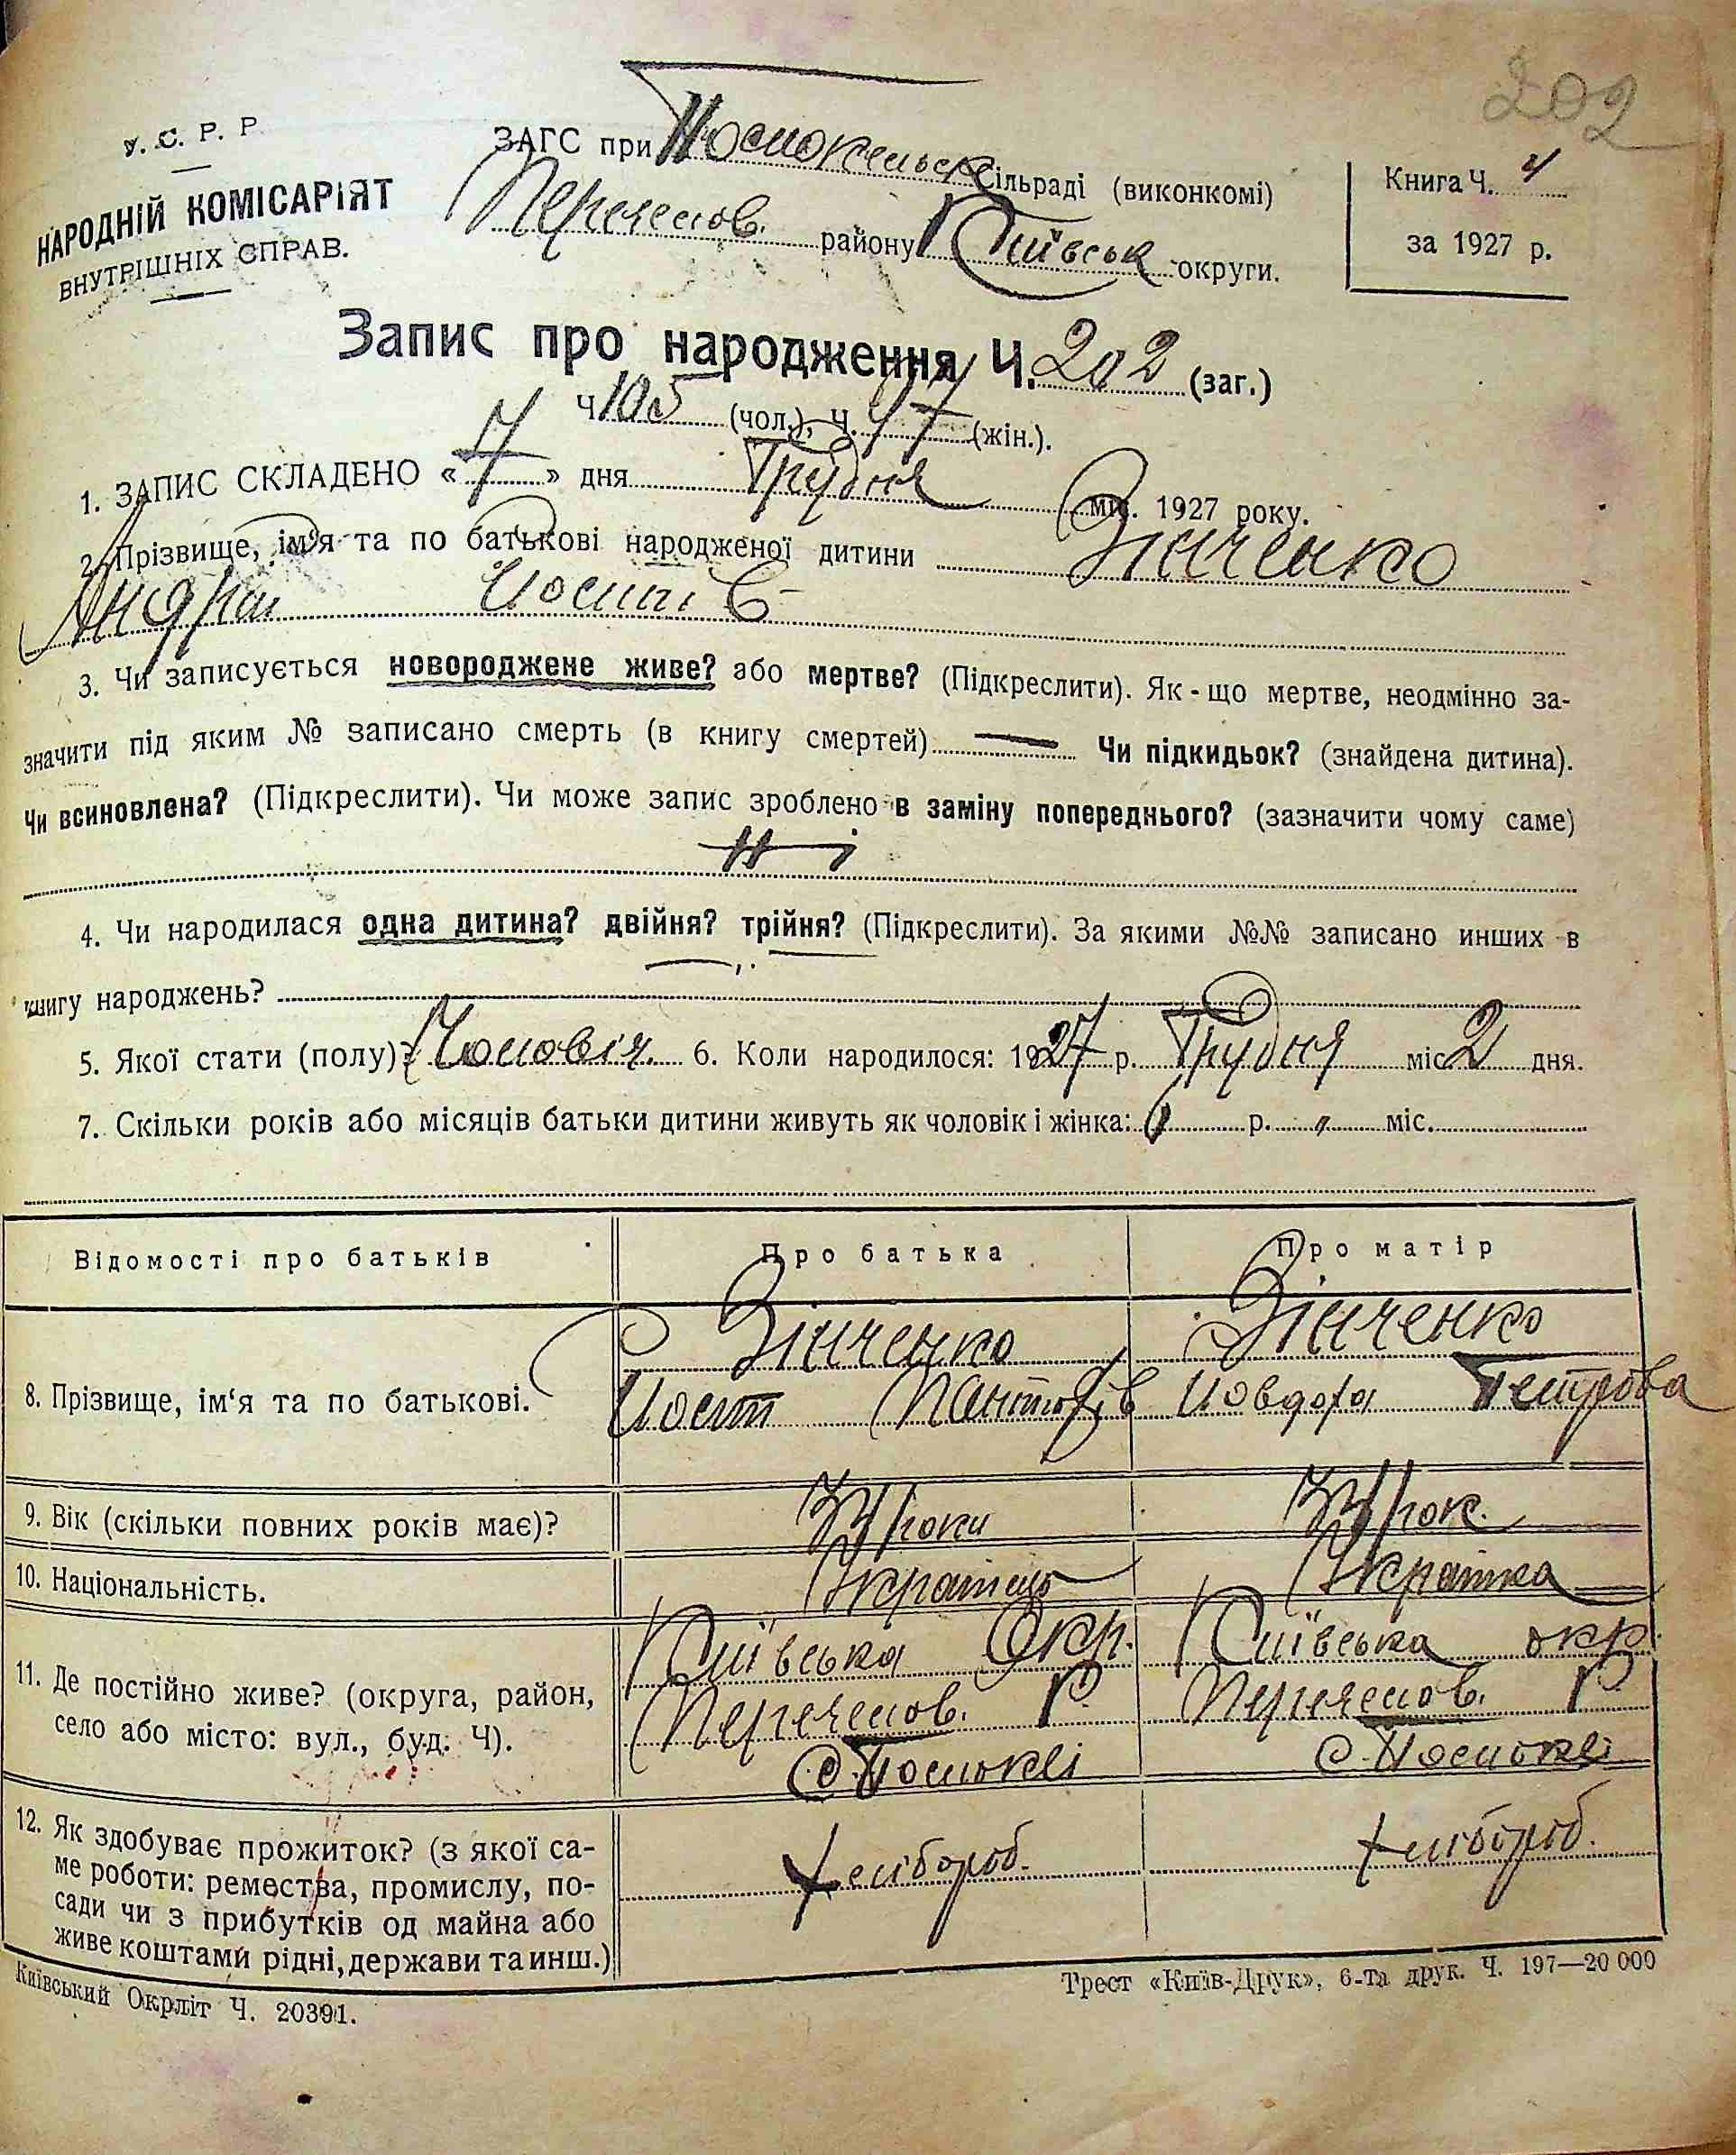 202
У. С. Р. Р
НАРОДНІЙ КОМІСАРІЯТ
ВНУТРІШНІХ СПРАВ.
ЗАГС при Носкокельск сільраді (виконкомі)
районy Київськ округи.
Книга Ч. 4
за 1927 р.
Запис про народження Ч. 202 (заг.)
Ч 105 (чол.), Ч. 97 (жін.).
1. ЗАПИС СКЛАДЕНО « 7 » дня Грудня міс. 1927 року.
2. Прізвище, ім'я та по батькові народженої дитини Зінченко
Андрій Иосипів
3. Чи записується новороджене живе? або мертве? (Підкреслити). Як-що мертве, неодмінно за-
значити під яким № записано смерть (в книгу смертей) — Чи підкидьок? (знайдена дитина).
Чи всиновлена? (Підкреслити). Чи може запис зроблено в заміну попереднього? (зазначити чому саме)
Ні
4. Чи народилася одна дитина? двійня? трійня? (Підкреслити). За якими №№ записано инших в
книгу народжень?
5. Якої стати (полу)? Чоловіч. 6. Коли народилося: 1927 р. Грудня міс 2 дня.
7. Скільки років або місяців батьки дитини живуть як чоловік і жінка: р. „ міс.
Відомості про батьків Про батька Про матір
8. Прізвище, ім'я та по батькові.
Зінченко Зінченко
Иосип Пантофів Иовдоха Петрова
9. Вік (скільки повних років має)? 34 роки 34 рок.
10. Національність. Українець Українка
11. Де постійно живе? (округа, район,
село або місто: вул., буд. Ч).
Київська Окр. Київська окр.
Р. Р
12. Як здобуває прожиток? (з якої са-
ме роботи: ремества, промислу, по-
сади чи з прибутків од майна або
живе коштами рідні, держави та инш.)
хлібороб. хлібороб.
Київський Окрліт Ч. 20391.
Трест «Київ-Друк», 6-та друк. Ч. 197—20 000